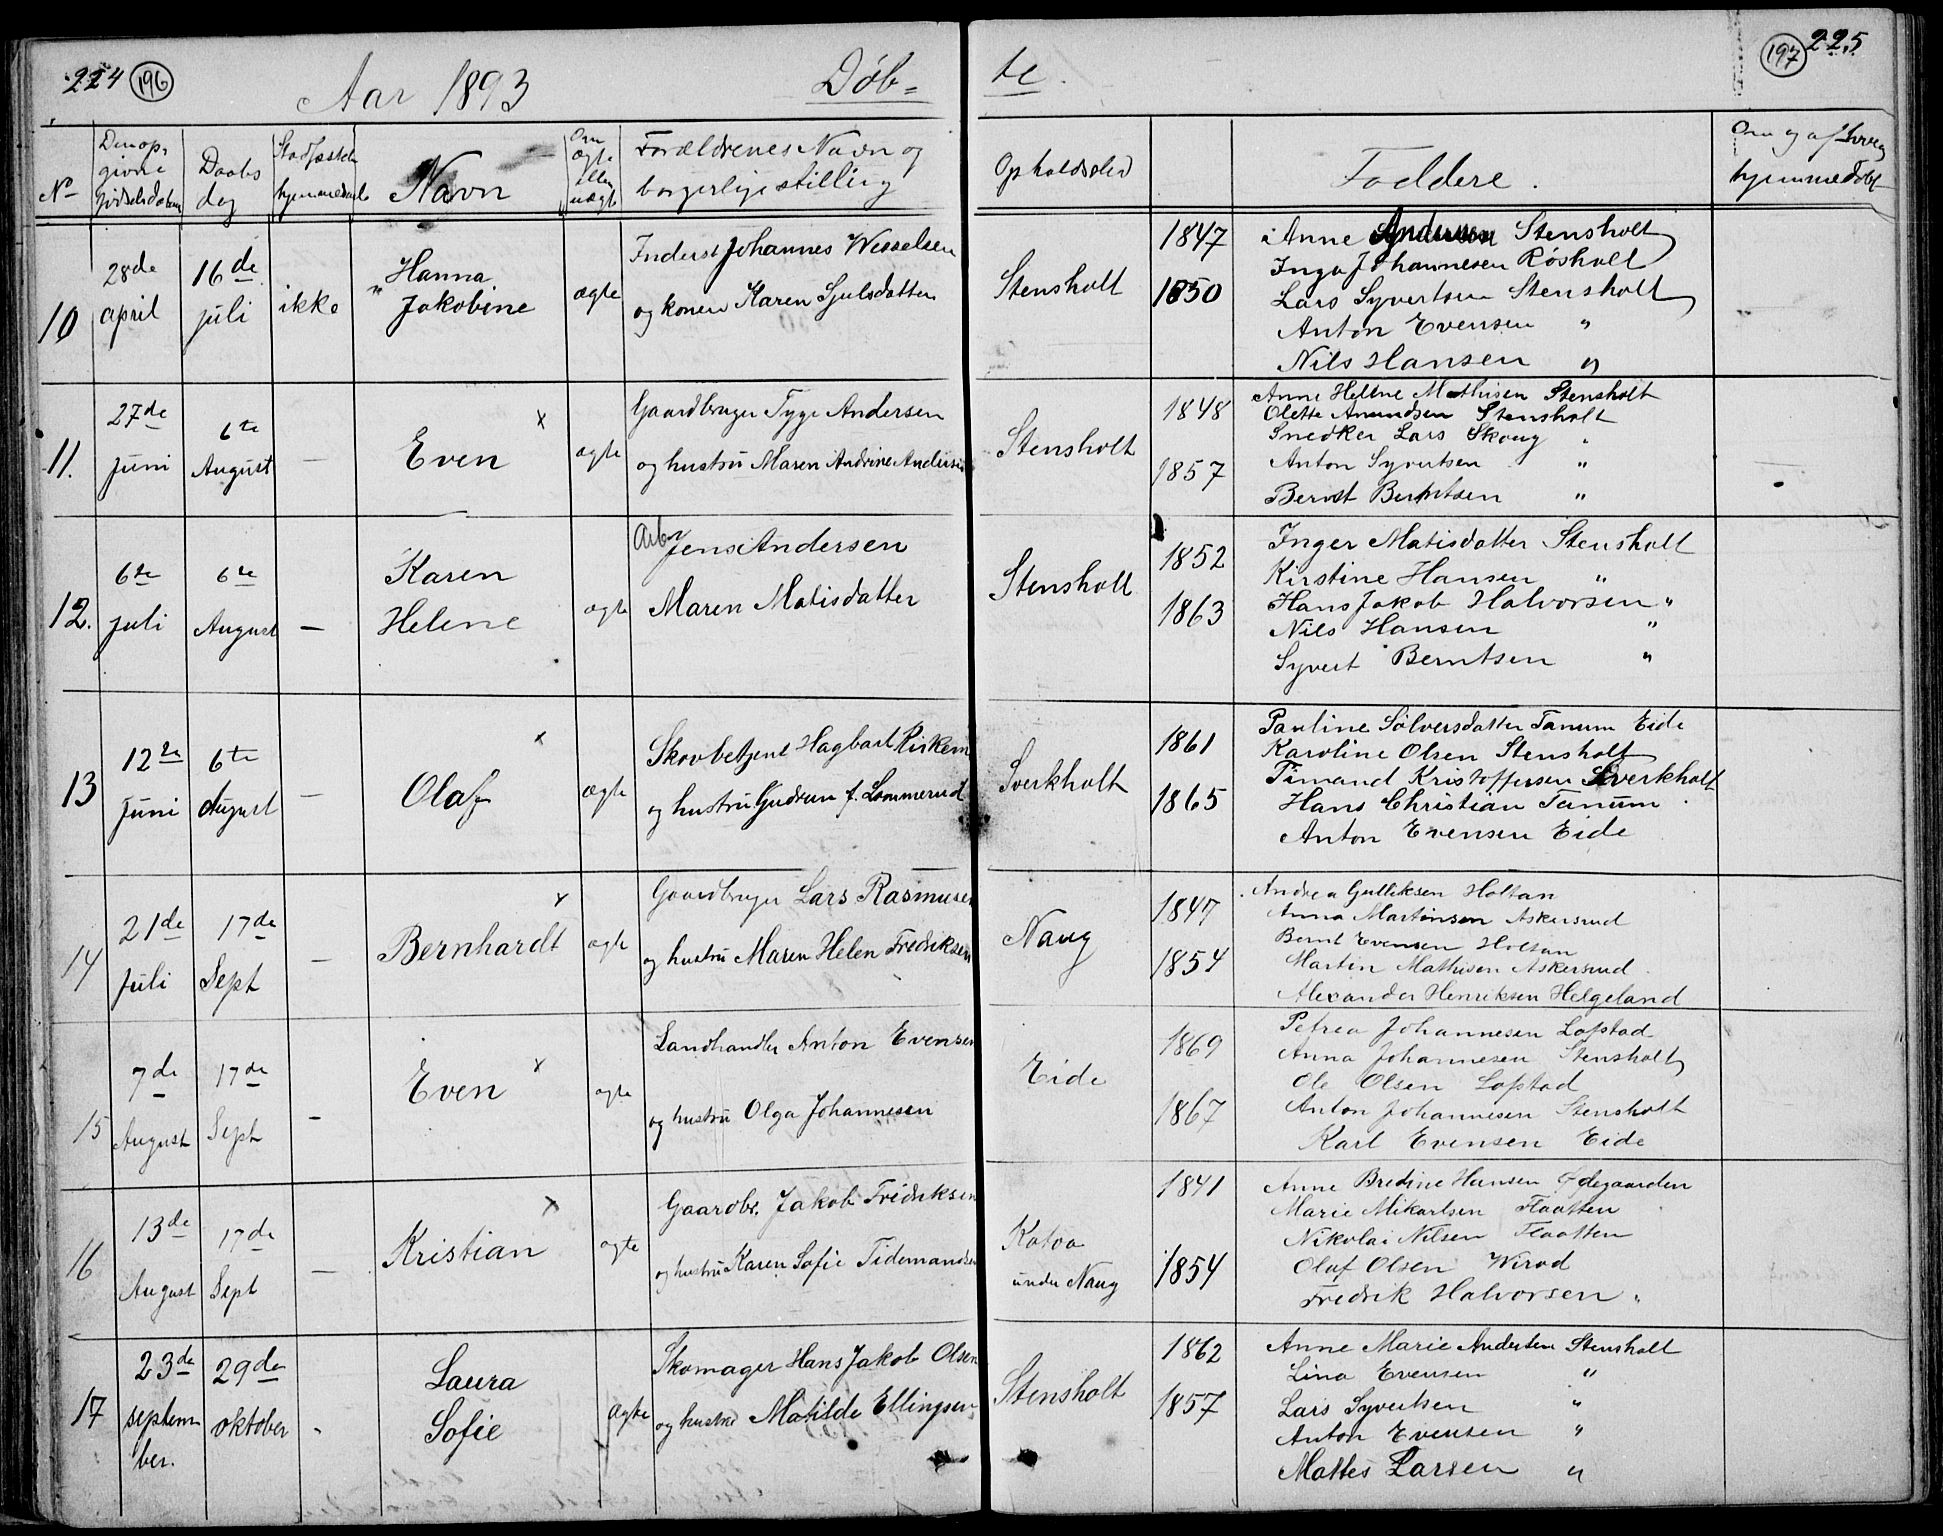 224 196 Aar 1893 Døb- te. 197 225
No
Den op-
givne
fødselsdatum
Daabs
dag
Stadfæstet
hjemmedaab
Navn
Om
ægte
eller
uægte
Forældrenes Navn og
borgerlige stilling
Opholdssted
Faddere.
Om og af hvem
hjemmedøbt
10
28de
april
16de
juli
ikke
Hanna
Jakobine
ægte
Inderst Johannes Wesselsen
og konen Karen Sjulsdatter
Stensholt
1847
1850
Anne Andersen Stensholt
Inga Johannesen Røsholt
Lars Syvertsen Stensholt
Anton Evensen "
Nils Hansen "
11.
27de
Juni
6te
August
—
Even
x
ægte
Gaardbruger Tyge Andersen
og hustru Maren Andrine Andersen
Stensholt
1848
1857
Anne Hellene Mathisen Stensholt
Olette Amundsen Stensholt
Snedker Lars Skoug "
Anton Syvertsen "
Bernt Berntsen "
12.
6te
juli
6te
August
—
Karen
Helene
ægte
Arb. Jens Andersen
Maren Matisdatter
Stensholt
1852
1863
Inger Matisdatter Stensholt
Kirstine Hansen "
Hans Jakob Halvorsen "
Nils Hansen "
Syvert Berntsen "
13
12te
Juni
6te
August
—
Olaf
x
ægte
Skovbetjent Hagbart
og hustru Gudrun f. Lommerud
Sverkholt
1861
1865
Pauline Sølversdatter Tanum Eide
Karoline Olsen Stensholt
Timand Kristoffersen Sverkholt
Hans Christian Tanum
Anton Evensen Eide
14
21de
Juli
17de
Sept
—
Bernhardt
x
ægte
Gaardbruger Lars Rasmusen
og hustru Maren Helen Fredriksen
Naug
1847
1854
Andrea Gulliksen Holtan
Anna Martinsen Askersrud
Bernt Evensen Holtan
Martin Mathisen Askersrud
Alexander Henriksen Helgeland
15
7de
August
17de
Sept
-
Even
x
ægte
Landhandler Anton Evensen
og hustru Olga Johannesen
Eide
1869
1867
Petrea Johannesen Lofstad
Anna Johannesen Stensholt
Ole Olsen Lofstad
Anton Johannesen Stensholt
Karl Evensen Eide
16
13de
August
17de
Sept
—
Kristian
x
ægte
Gaardbr. Jakob Fridriksen
og hustru Karen Sofie Tidemandsen
Katva
under Naug
1841
1854
Anne Bredine Hansen Ødegaarden
Marie Mikarlsen Flaatten
Nikolai Nilsen Flaatten
Olaf Olsen Wirod
Fredrik Halvorsen "
17
23de
septem
ber.
29de
oktober
-
Laura
Sofie
ægte
Skomager Hans Jakob Olsen
og hustru Matilde Ellingsen
Stensholt
1862
1857
Anne Marie Andersen Stensholt
Lina Evensen "
Lars Syvertsen "
Anton Evensen "
Mattes Larsen "